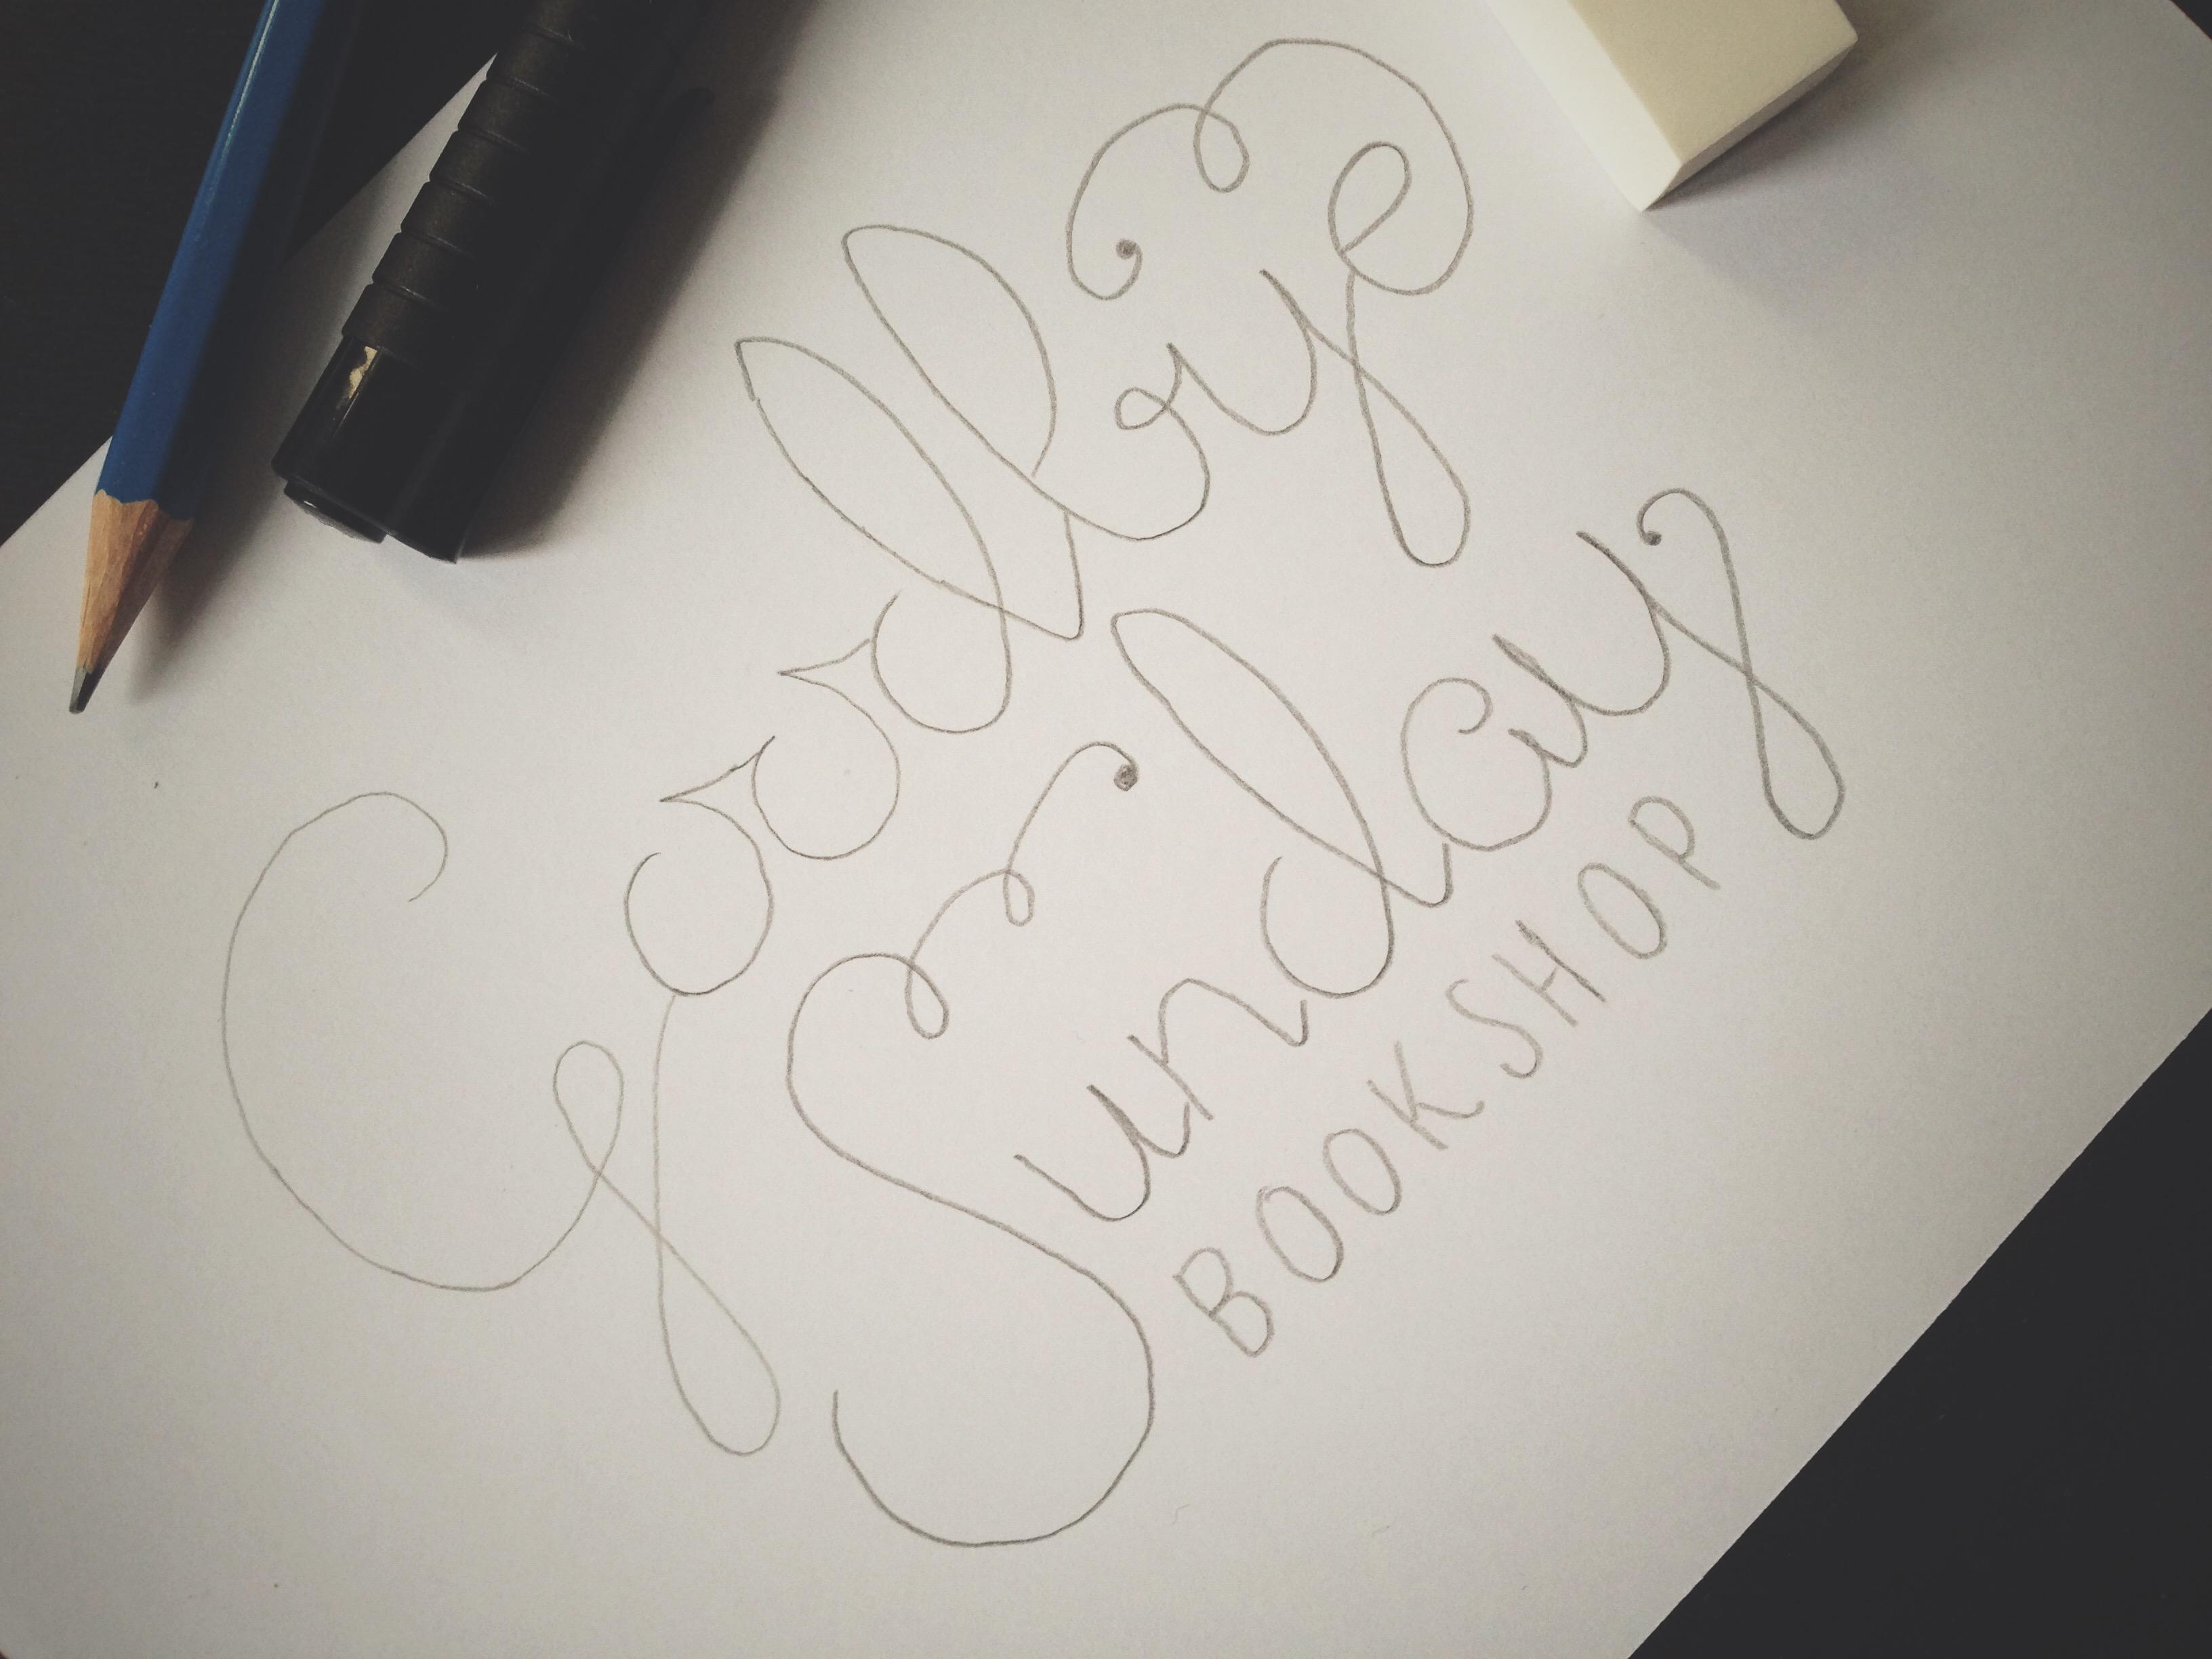 Goodbye
Sunday
BOOKSHOP